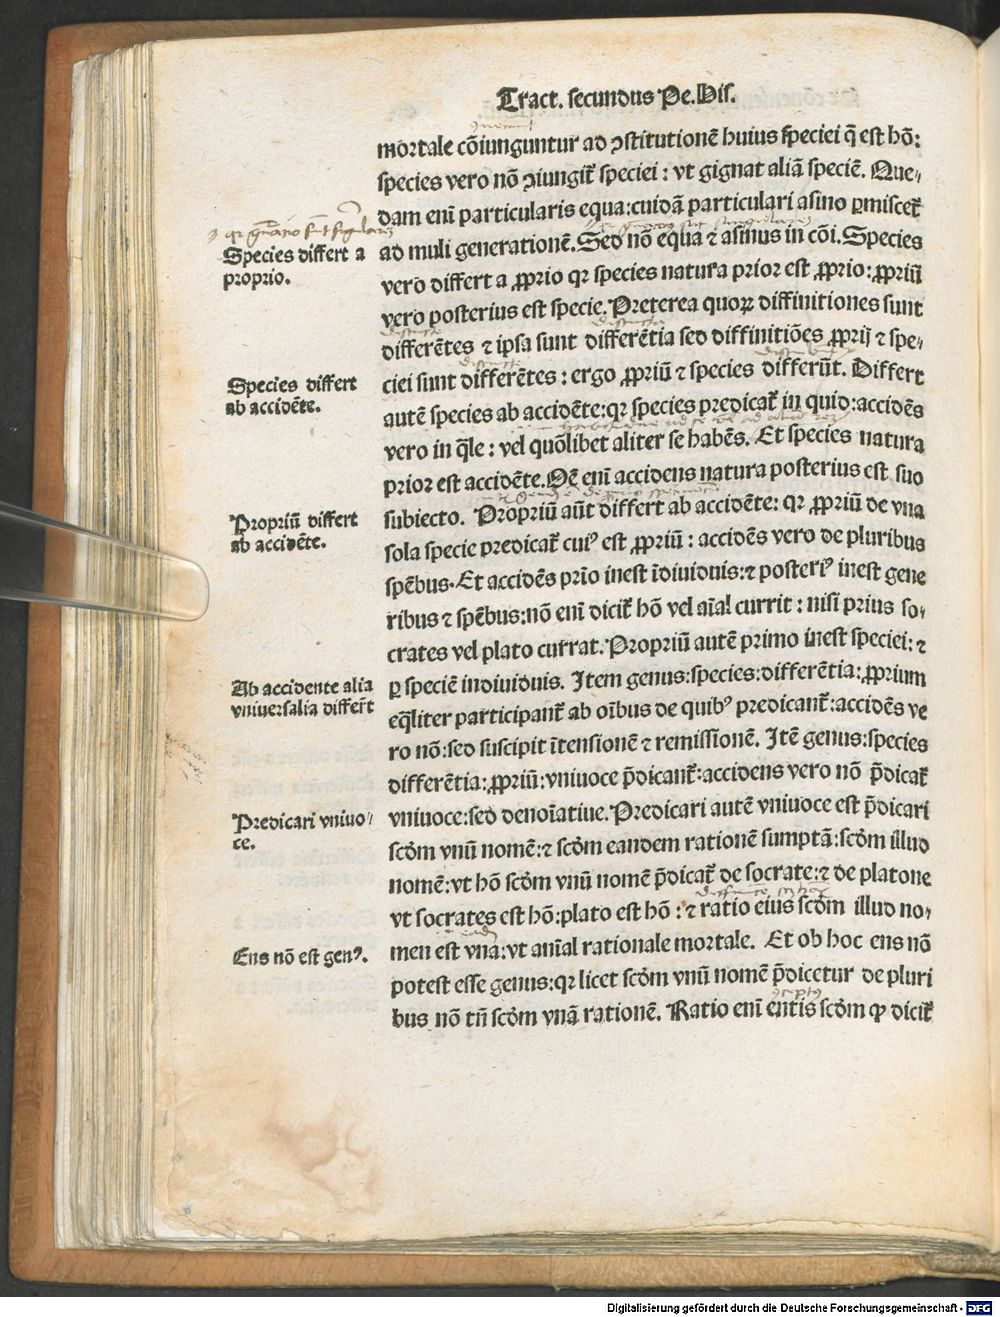 Tract. secundus Pe. His.
mortale cõiunguntur ad ꝯstitutionẽ huius speciei q̃ est hõ:
species vero nõ ꝯiungit̃ speciei : vt gignat aliã speciẽ. Que-
dam eni᷒ particularis equa:cuidã particulari asino ꝑmiscet̃
ad muli generationẽ. Sed nõ equa ⁊ asinus in cõi. Species
vero differt a ꝓprio qꝛ species natura prior est ꝓprio: ꝓpriũ
vero posterius est specie. Preterea quoꝝ diffinitiones sunt
differẽtes ⁊ ipsa sunt differẽtia sed diffinitiões ꝓprij ⁊ spe-
ciei sunt differẽtes : ergo ꝓpriũ ⁊ species differũt. Differt
autẽ species ab accidẽte:qꝛ species predicat̃ in quid:accidẽs
vero in q̃le : vel quõlibet aliter se habẽs. Et species natura
prior est accidẽte. Oẽ enĩ accidens natura posterius est suo
subiecto. Propriũ aũt differt ab accidẽte: qꝛ ꝓpriũ de vna
sola specie predicat̃ cuiꝰ est ꝓpriũ : accidẽs vero de pluribus
spẽbus. Et accidẽs pr̃io inest ĩdiuiduis:⁊ posteriꝰ inest gene
ribus ⁊ spẽbus:nõ enĩ dicit̃ hõ vel aĩal currit : nisi prius so-
crates vel plato currat. Propriũ autẽ primo inest speciei: ⁊
ꝑ speciẽ indiuiduis. Item genus:species:differẽtia: ꝓprium
eq̃liter participant̃ ab oĩbus de quibꝰ predicant̃:accidẽs ve
ro nõ:sed suscipit ĩtensionẽ ⁊ remissionẽ. Itẽ genus:species
differẽtia: ꝓpriũ:vniuoce p̃dicant̃:accidens vero nõ p̃dicat̃
vniuoce:sed denoĩatiue. Predicari autẽ vniuoce est p̃dicari
scd̃m vnũ nomẽ:⁊ scd̃m eandem rationẽ sumptã:scd̃m illud
nomẽ:vt hõ scd̃m vnũ nomẽ p̃dicat̃ de socrate:⁊ de platone
vt socrates est hõ:plato est hõ : ⁊ ratio eius scd̃m illud no-
men est vna:vt anĩal rationale mortale. Et ob hoc ens nõ
potest esse genus:qꝛ licet scd̃m vnũ nomẽ p̃dicetur de pluri
bus nõ tñ scd̃m vnã rationẽ. Ratio enĩ entis scd̃m ꝙ dicit̃
Species differt a
proprio.
Species differt
ab accidẽte.
Propriũ differt
ab accidẽte.
Ab accidente alia
vniuersalia differt̃
Predicari vniuo-
ce.
Ens nõ est genꝰ.
Digitalisierung gefördert durch die Deutsche Forschungsgemeinschaft - DFG